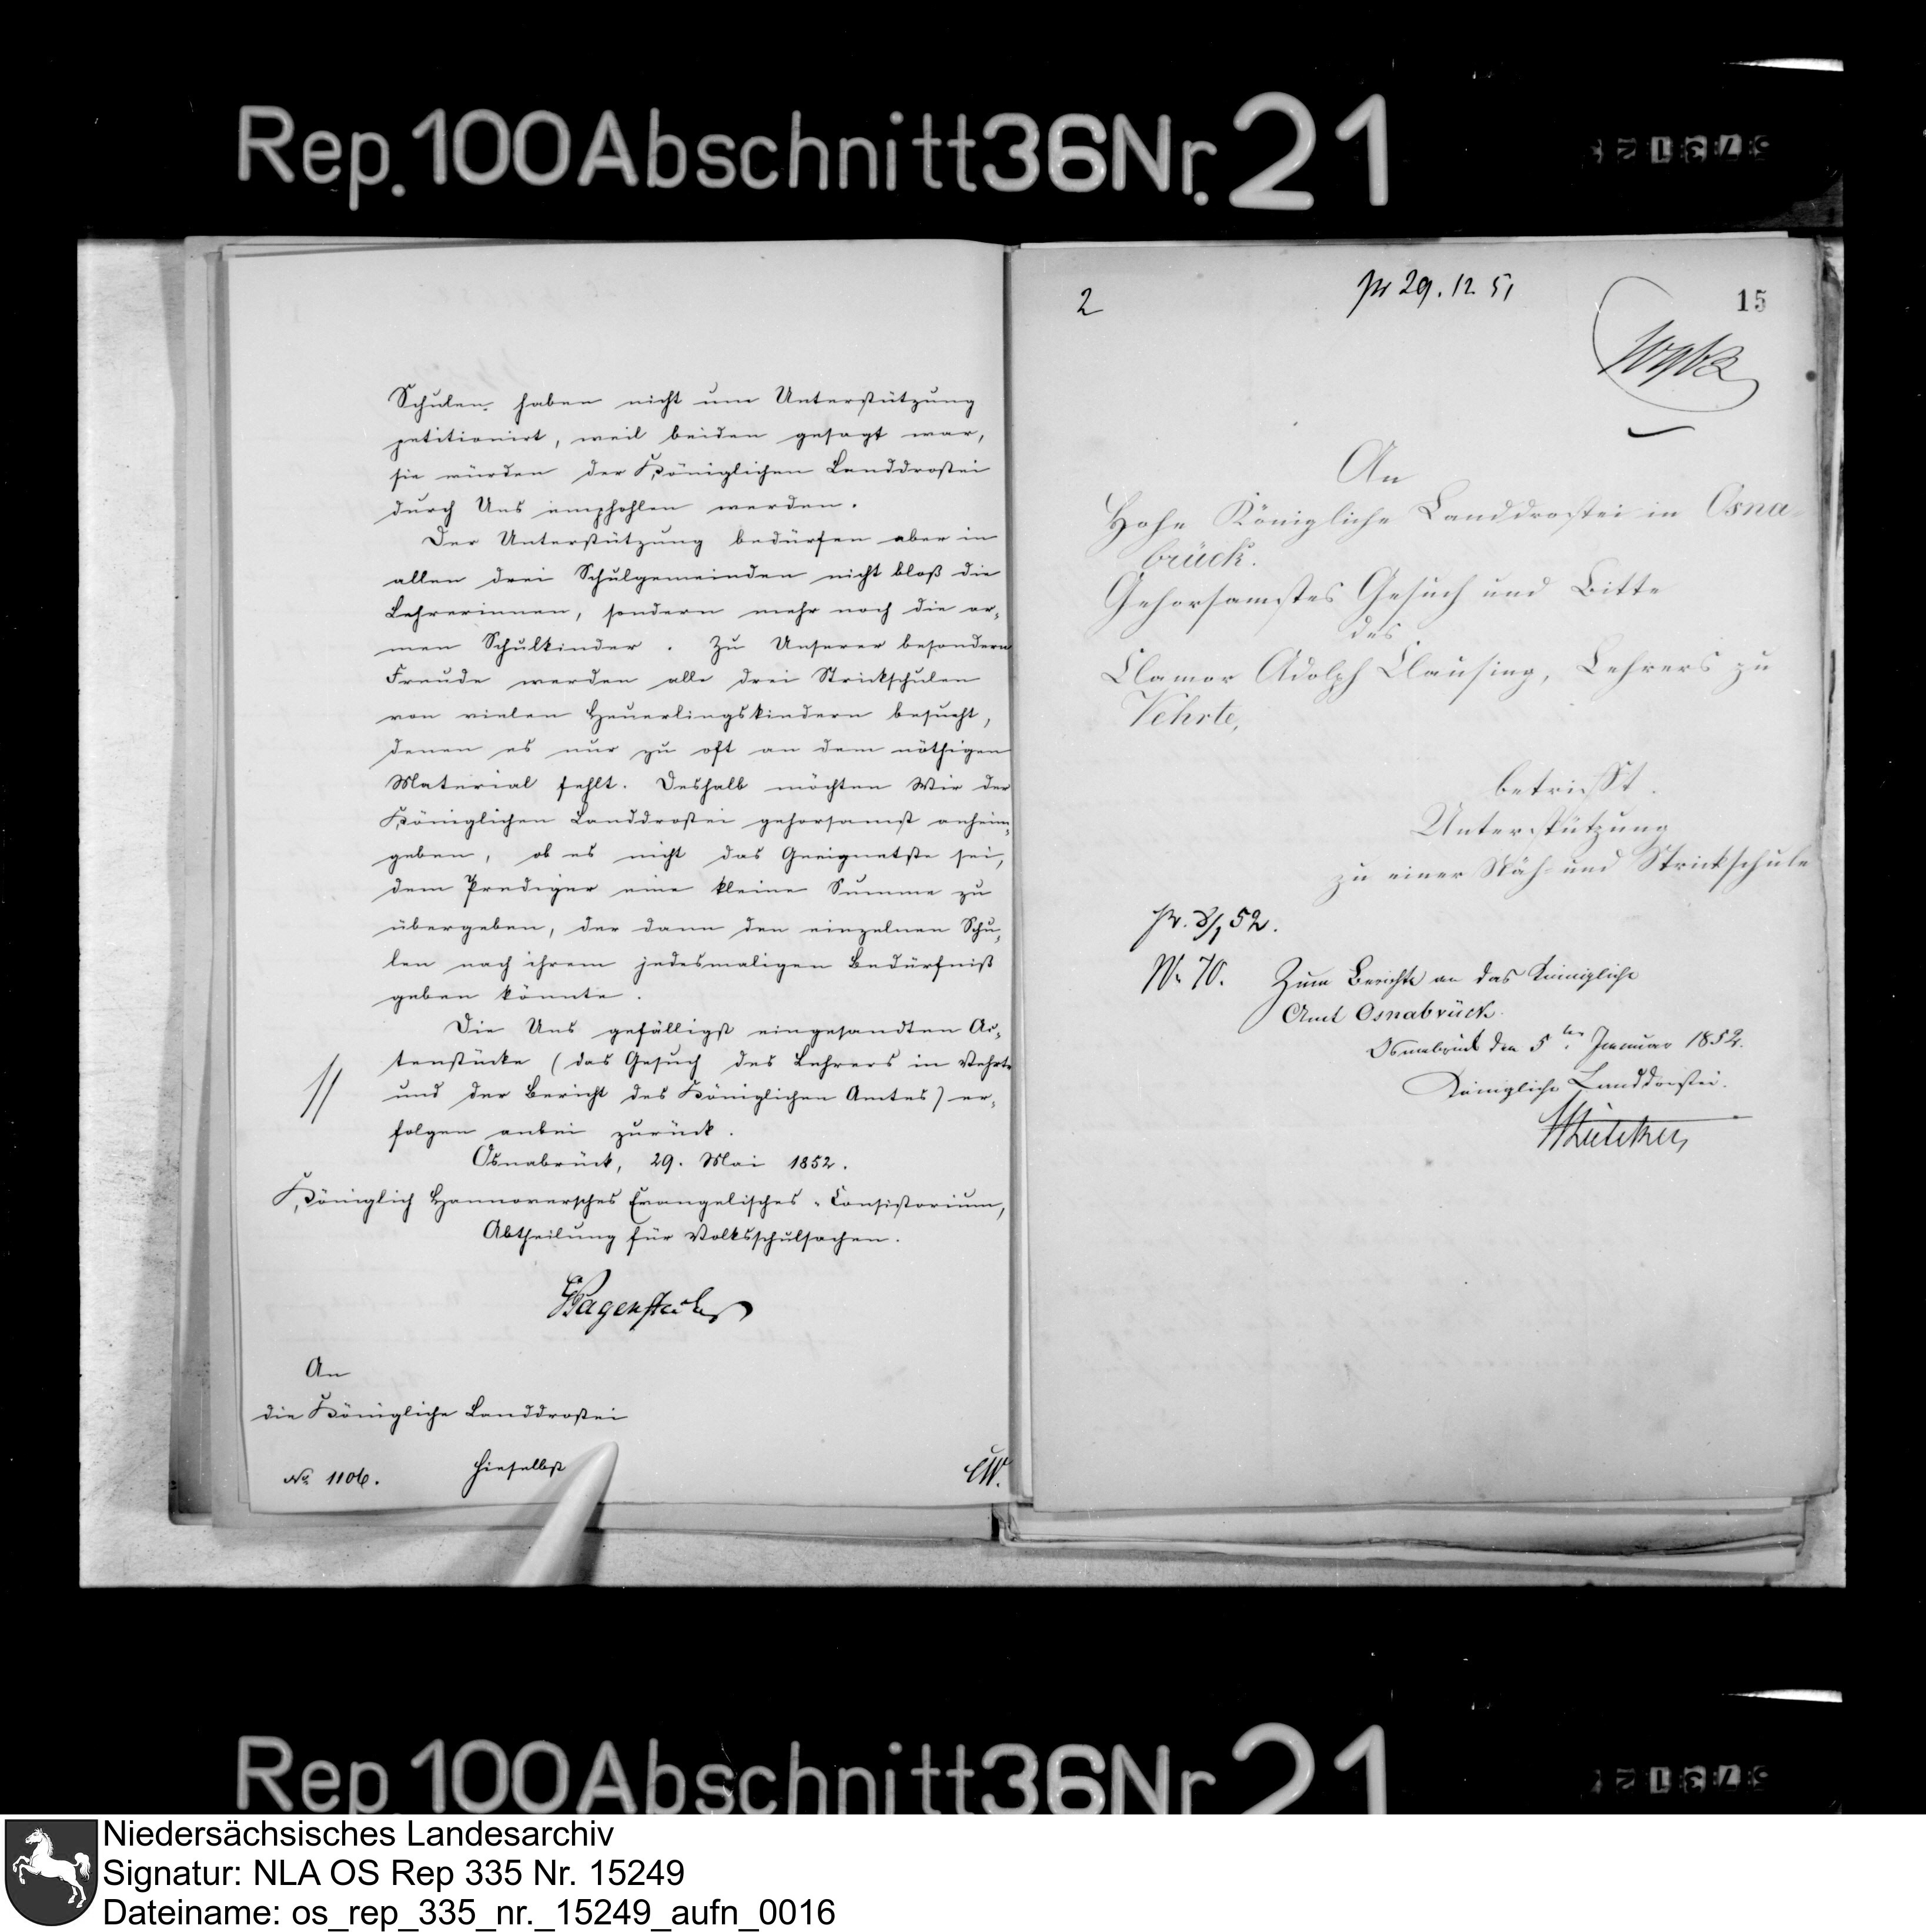 Rep. 100 Abschnitt 36 Nr. 21
Schulen haben nicht um Unterstützung
petitionirt, weil beiden gesagt war,
sie würden der Königlichen Landdrostei
durch Uns empfohlen werden.
Der Unterstützung bedürfen aber in
allen drei Schulgemeinden nicht bloß die
Lehrerinnen, sondern mehr noch die ar-
men Schulkinder. Zu Unserer besondern
Freude werden alle drei Strickschulen
von vielen Heuerlingskindern besucht,
denen es nur zu oft an dem nöthigen
Material fehlt. Deshalb möchten Wir der
Königlichen Landdrostei gehorsamst anheim-
geben, ob es nicht das Geeignetste sei,
dem Prediger eine kleine Summe zu
übergeben, der dann den einzelnen Schu-
len nach ihrem jedesmaligen Bedürfniß
geben könnte.
Die Uns gefälligst eingesandten Ac-
tenstücke (das Gesuch des Lehrers in Vehrte
und der Bericht des Königlichen Amtes) er-
folgen anbei zurück.
Osnabrück, 29. Mai 1852.
Königlich Hannoversches Evangelisches Consistorium,
Abtheilung für Volksschulsachen.
An
die Königliche Landdrostei
hieselbst
No 1106.
2
pr 29. 12. 51
15
An
Hohe Königliche Landdrostei in Osna-
brück.
Gehorsamstes Gesuch und Bitte
des
Clamor Adolph Clausing, Lehrers zu
Vehrte,
betrifft.
Unterstützung
zu einer Näh- und Strickschule
pr. 8/1 52.
Nr. 70. Zum Berichte an das Königliche
Amt Osnabrück.
Osnabrück den 5ten Januar 1852.
Königliche Landdrostei.
Rep. 100 Abschnitt 36 Nr. 21
Niedersächsisches Landesarchiv
Signatur: NLA OS Rep 335 Nr. 15249
Dateiname: os_rep_335_nr._15249_aufn_0016